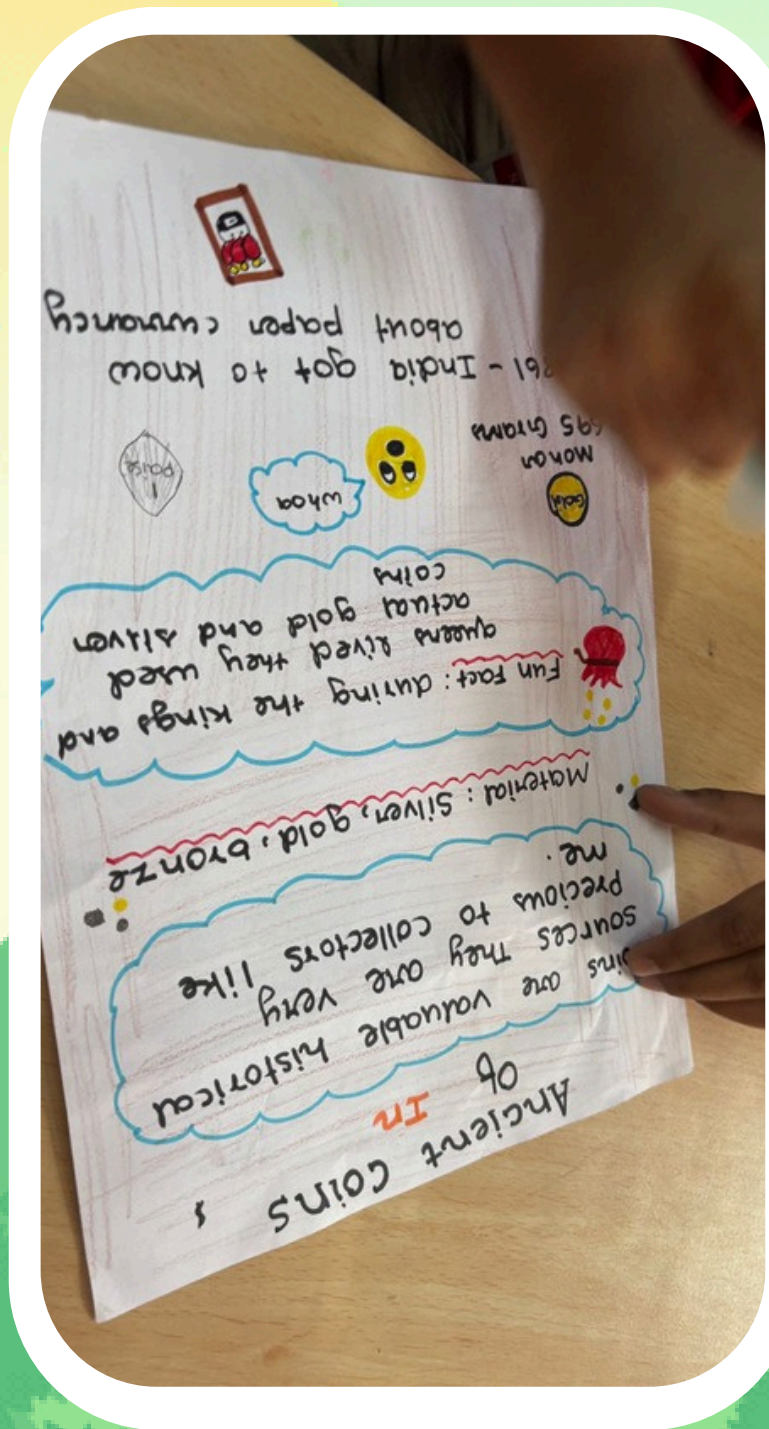 Ancient Coins
Of In
are valuable historical
sources They are very
precious to collectors like
me.
Material : Silver, gold, bronze
Fun Fact : during the kings and
queens lived they used
actual gold and sliver
coins
Gold
Mohar
695 Grams
whoa
1
paise
- India got to know
about paper currancy